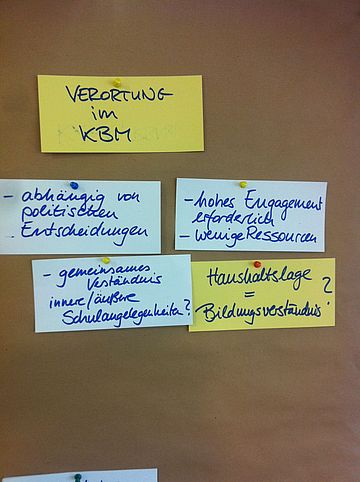 VERORTUNG
im
KBM
- abhängig von
politischen
Entscheidungen
- hohes Engagement
erforderlich
- wenige Ressourcen
- gemeinsames
Verständnis
innere/äußere
Schulangelegenheiten?
Haushaltslage
=
Bildungsverständnis?